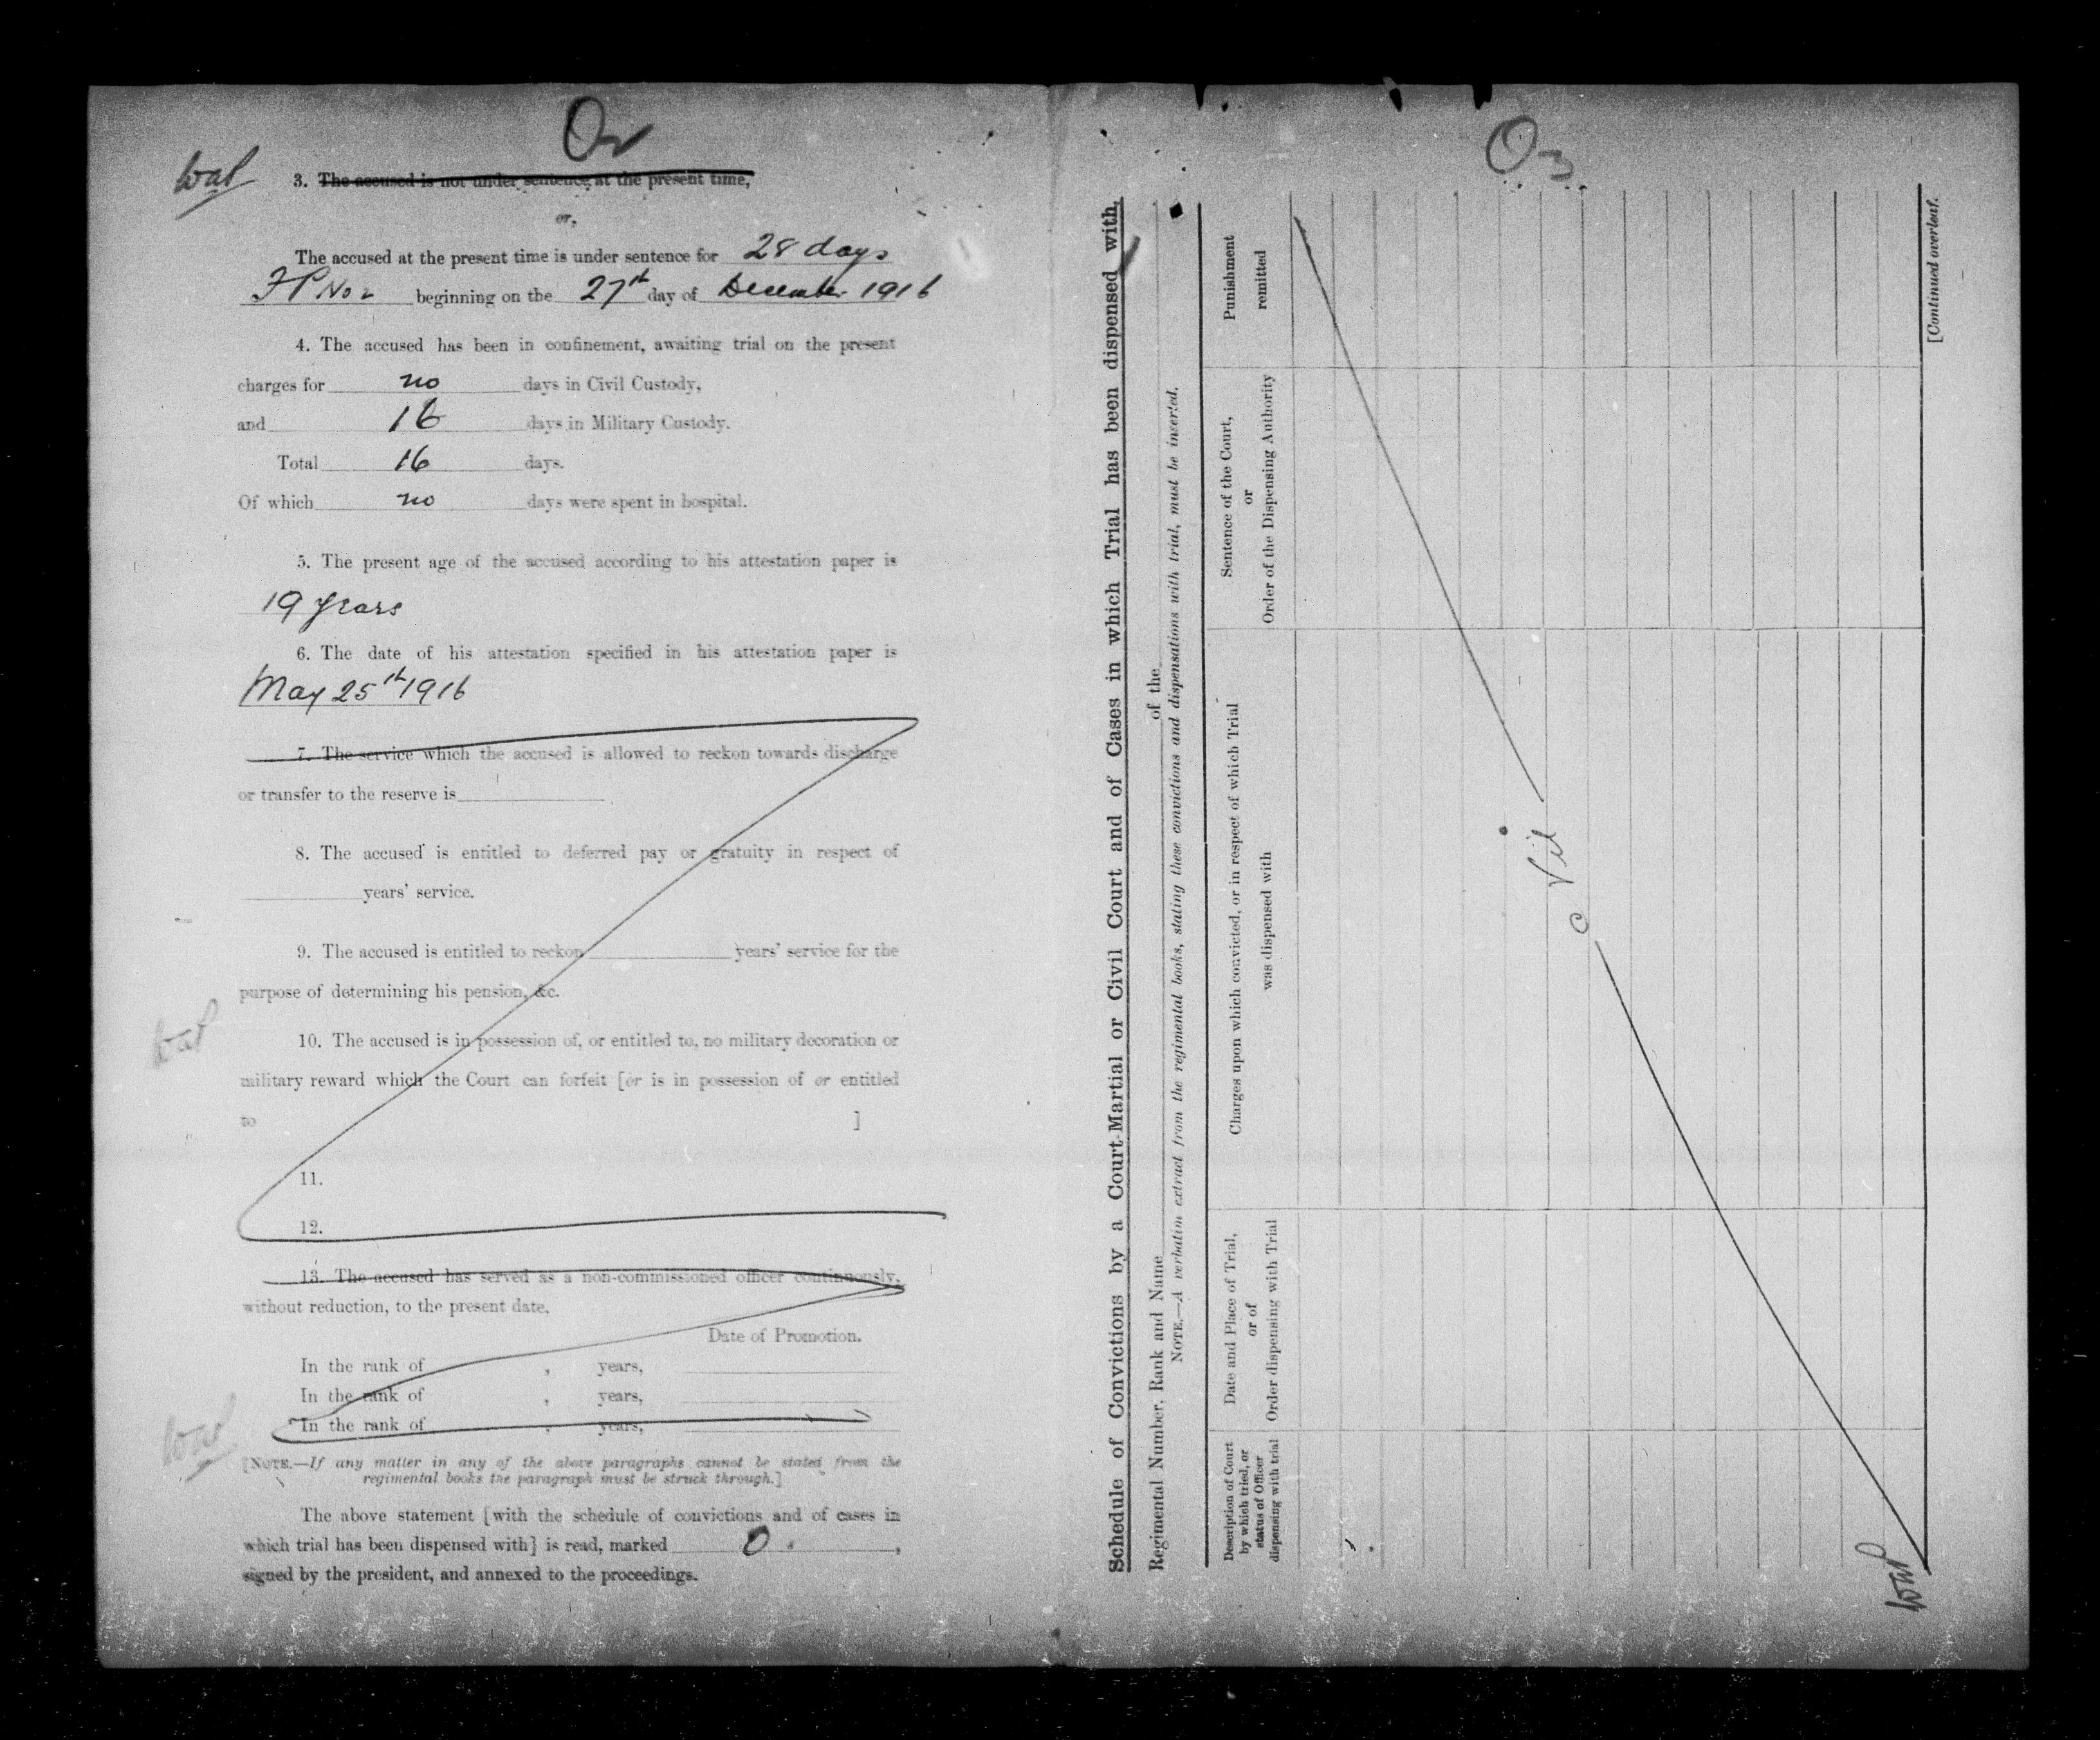 O2
WAP
3. The accused is not under sentence at the present time,
or,
The accused at the present time is under sentence for 28 days
FP No 2 beginning on the 27th day of December 1916
4. The accused has been in confinement, awaiting trial on the present
charges for no days in Civil Custody,
and 16 days in Military Custody.
Total 16 days.
Of which no days were spent in hospital.
5. The present age of the accused according to his attestation paper is
19 years
6. The date of his attestation specified in his attestation paper is
May 25th 1916
7. The service which the accused is allowed to reckon towards discharge
or transfer to the reserve is
8. The accused is entitled to deferred pay or gratuity in respect of
years' service.
9. The accused is entitled to reckon years' service for the
purpose of determining his pension, &c.
10. The accused is in possession of, or entitled to, no military decoration or
military reward which the Court can forfeit [or is in possession of or entitled
to ]
11.
12.
13. The accused has served as a non-commissioned officer continuously,
without reduction, to the present date.
Date of Promotion.
In the rank of , years,
In the rank of , years,
In the rank of , years,
[NOTE.—If any matter in any of the above paragraphs cannot be stated from the
regimental books the paragraph must be struck through.]
The above statement [with the schedule of convictions and of cases in
which trial has been dispensed with] is read, marked O.,
signed by the president, and annexed to the proceedings.
O3
Schedule of Convictions by a Court-Martial or Civil Court and of Cases in which Trial has been dispensed with.
Regimental Number, Rank and Name of the
NOTE.—A verbatim extract from the regimental books, stating these convictions and dispensations with trial, must be inserted.
Description of Court
by which tried, or
status of Officer
dispensing with trial
Date and Place of Trial,
or of
Order dispensing with Trial
Charges upon which convicted, or in respect of which Trial
was dispensed with
Sentence of the Court,
or
Order of the Dispensing Authority
Punishment
remitted
Nil
[Continued overleaf.